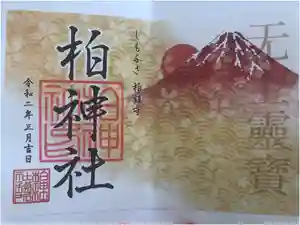 无上靈寶
しもふさ 柏鎮守
柏神社
令和二年正月吉日